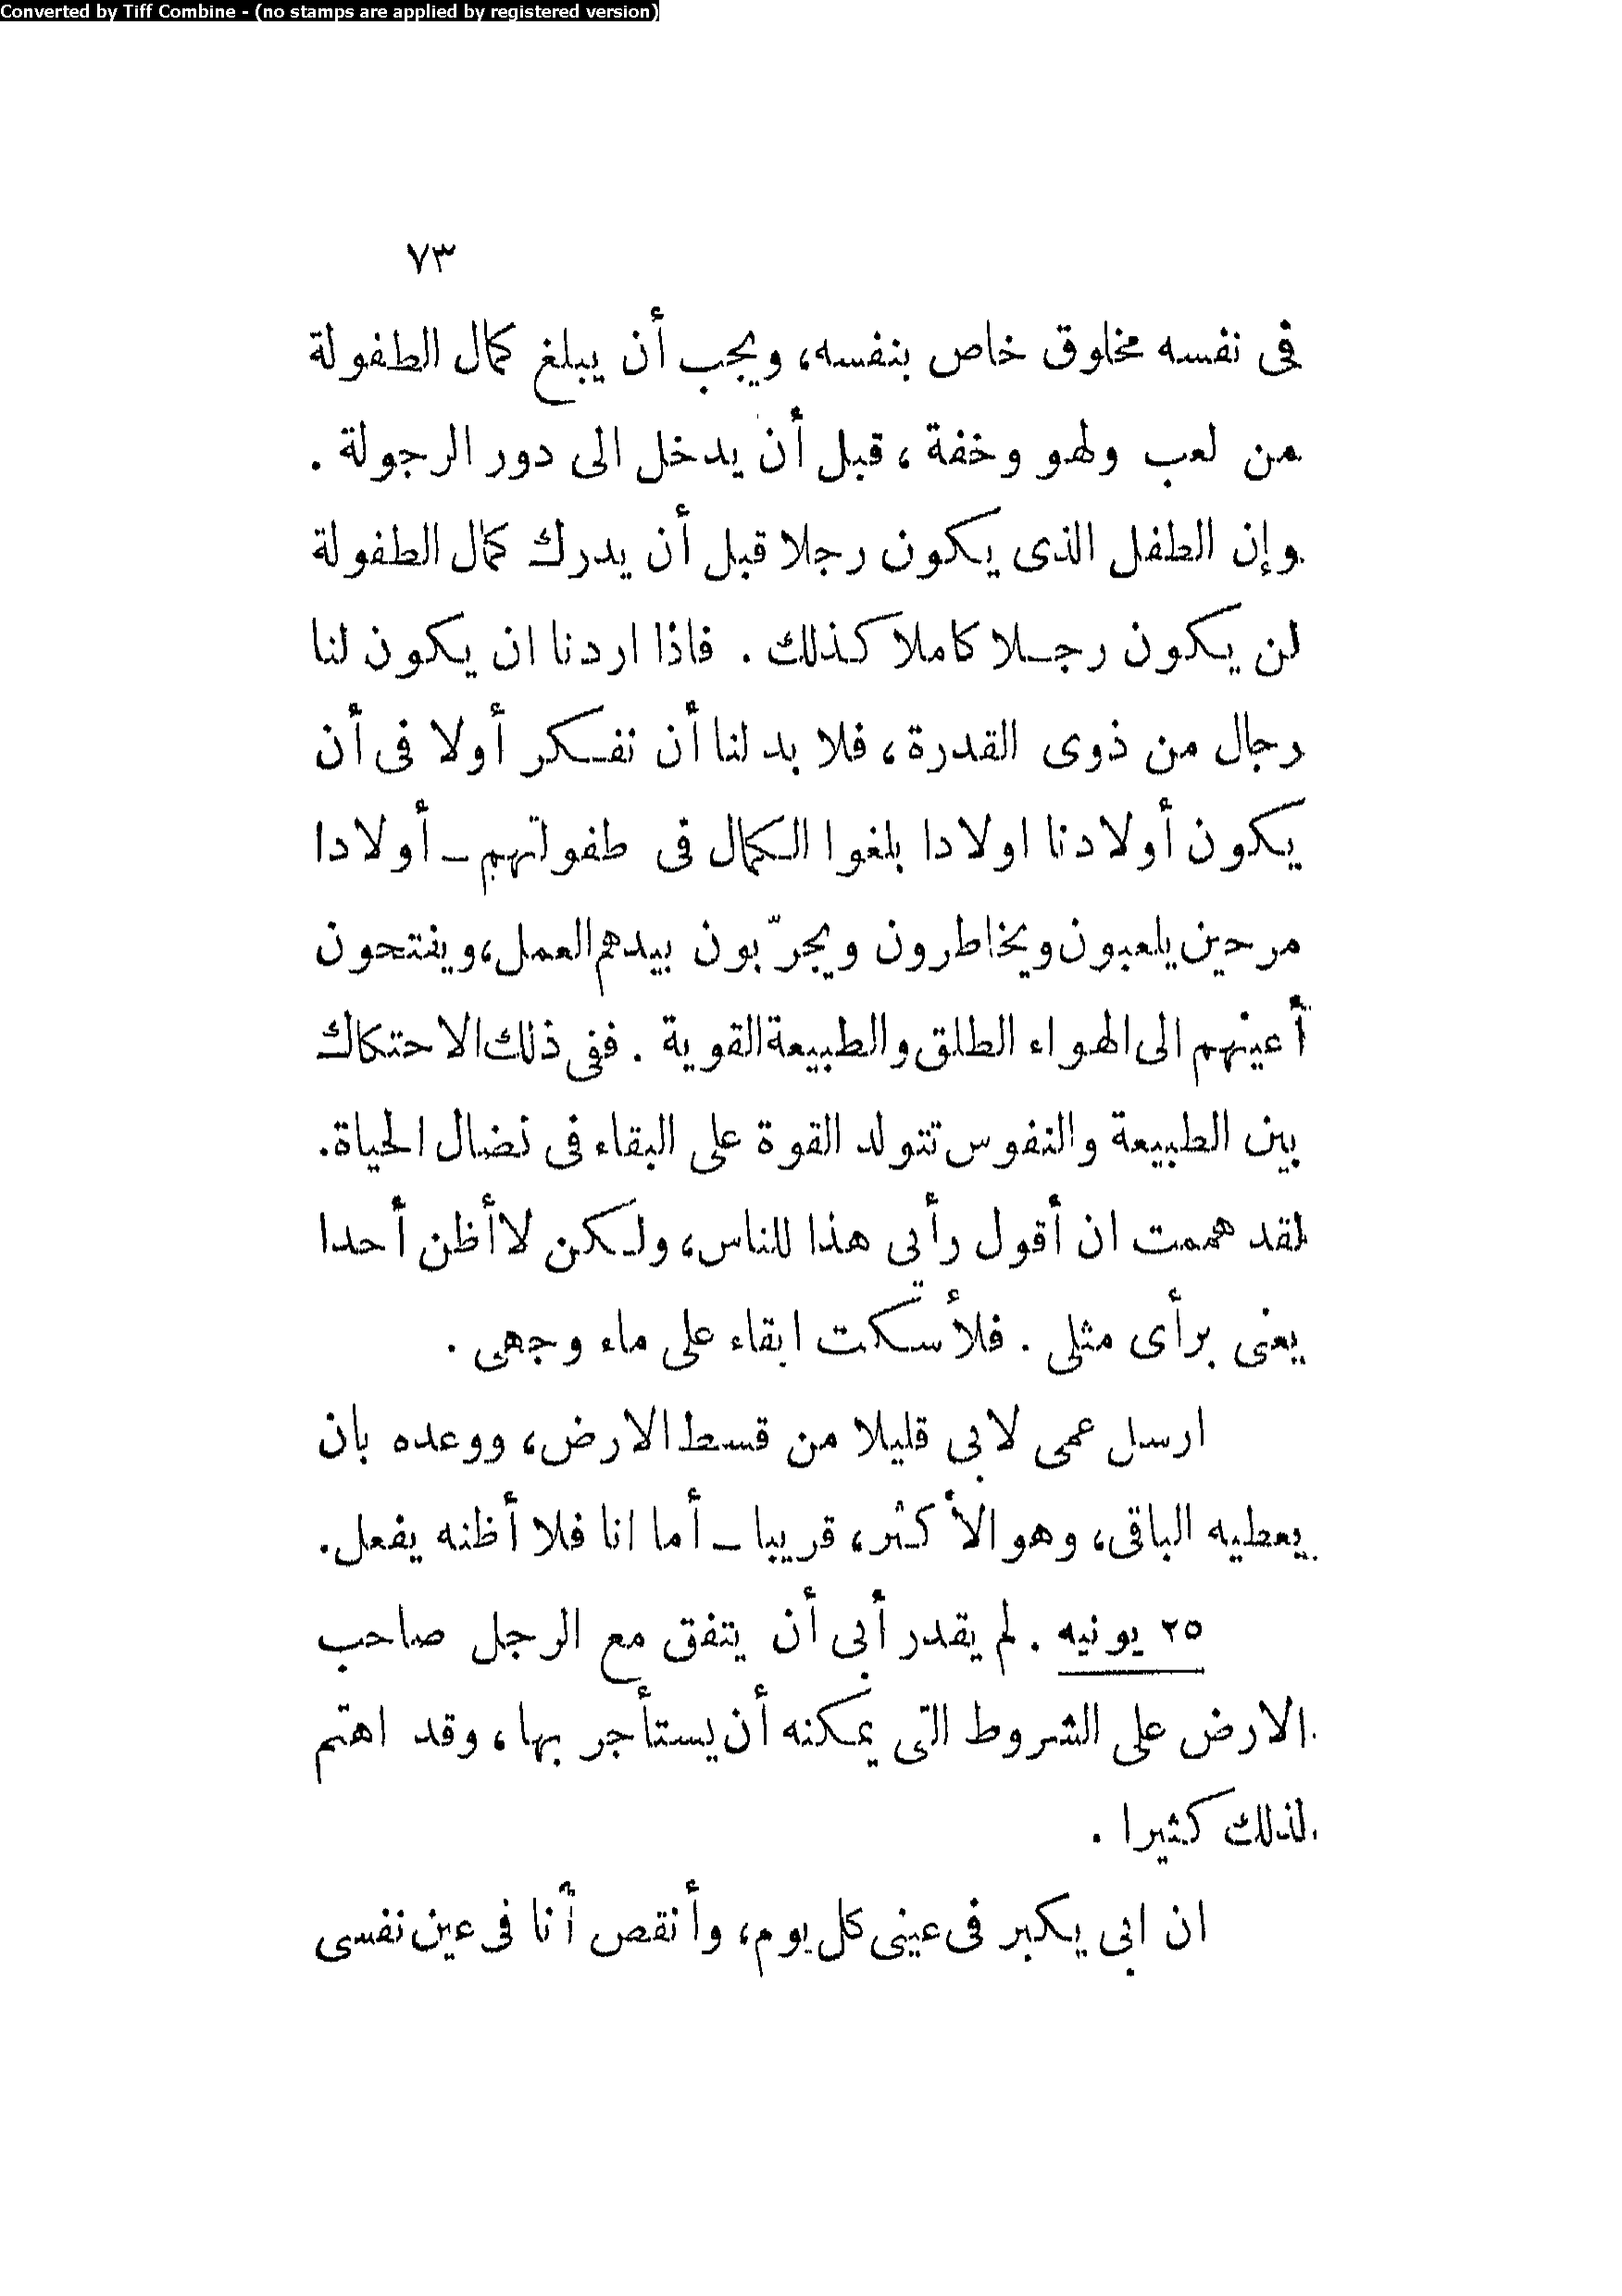 Converted by Tiff Combine - (no stamps are applied by registered version)
٧٣
فى نفسه مخلوق خاص بنفسه، ويجب أن يبلغ كمال الطفولة
من لعب ولهو وخفة، قبل أن يدخل الى دور الرجولة .
وإن الطفل الذى يكون رجلا قبل أن يدرك كمال الطفولة
لن يكون رجلا كاملا كذلك . فاذا اردنا ان يكون لنا
رجال من ذوى القدرة، فلا بد لنا أن نفكر أولا فى أن
يكون أولادنا اولادا بلغوا الكمال فى طفولتهم ــ أولادا
مرحين يلعبون ويخاطرون ويجرّبون بيدهم العمل، ويفتحون
أعينهم الى الهواء الطلق والطبيعة القوية . ففى ذلك الاحتكاك
بين الطبيعة والنفوس تتولد القوة على البقاء فى نضال الحياة.
لقد هممت ان أقول رأيى هذا للناس، ولكن لا أظن أحدا
يعنى برأى مثلى . فلأسكت ابقاء على ماء وجهى .
ارسل عمى لابى قليلا من قسط الارض، ووعده بان
يعطيه الباقى، وهو الأكثر، قريبا ــ أما انا فلا أظنه يفعل.
٢٥ يونيه . لم يقدر أبى أن يتفق مع الرجل صاحب
الارض على الشروط التى يمكنه أن يستأجر بها، وقد اهتم
لذلك كثيرا .
ان ابى يكبر فى عينى كل يوم، وأنقص أنا فى عين نفسى